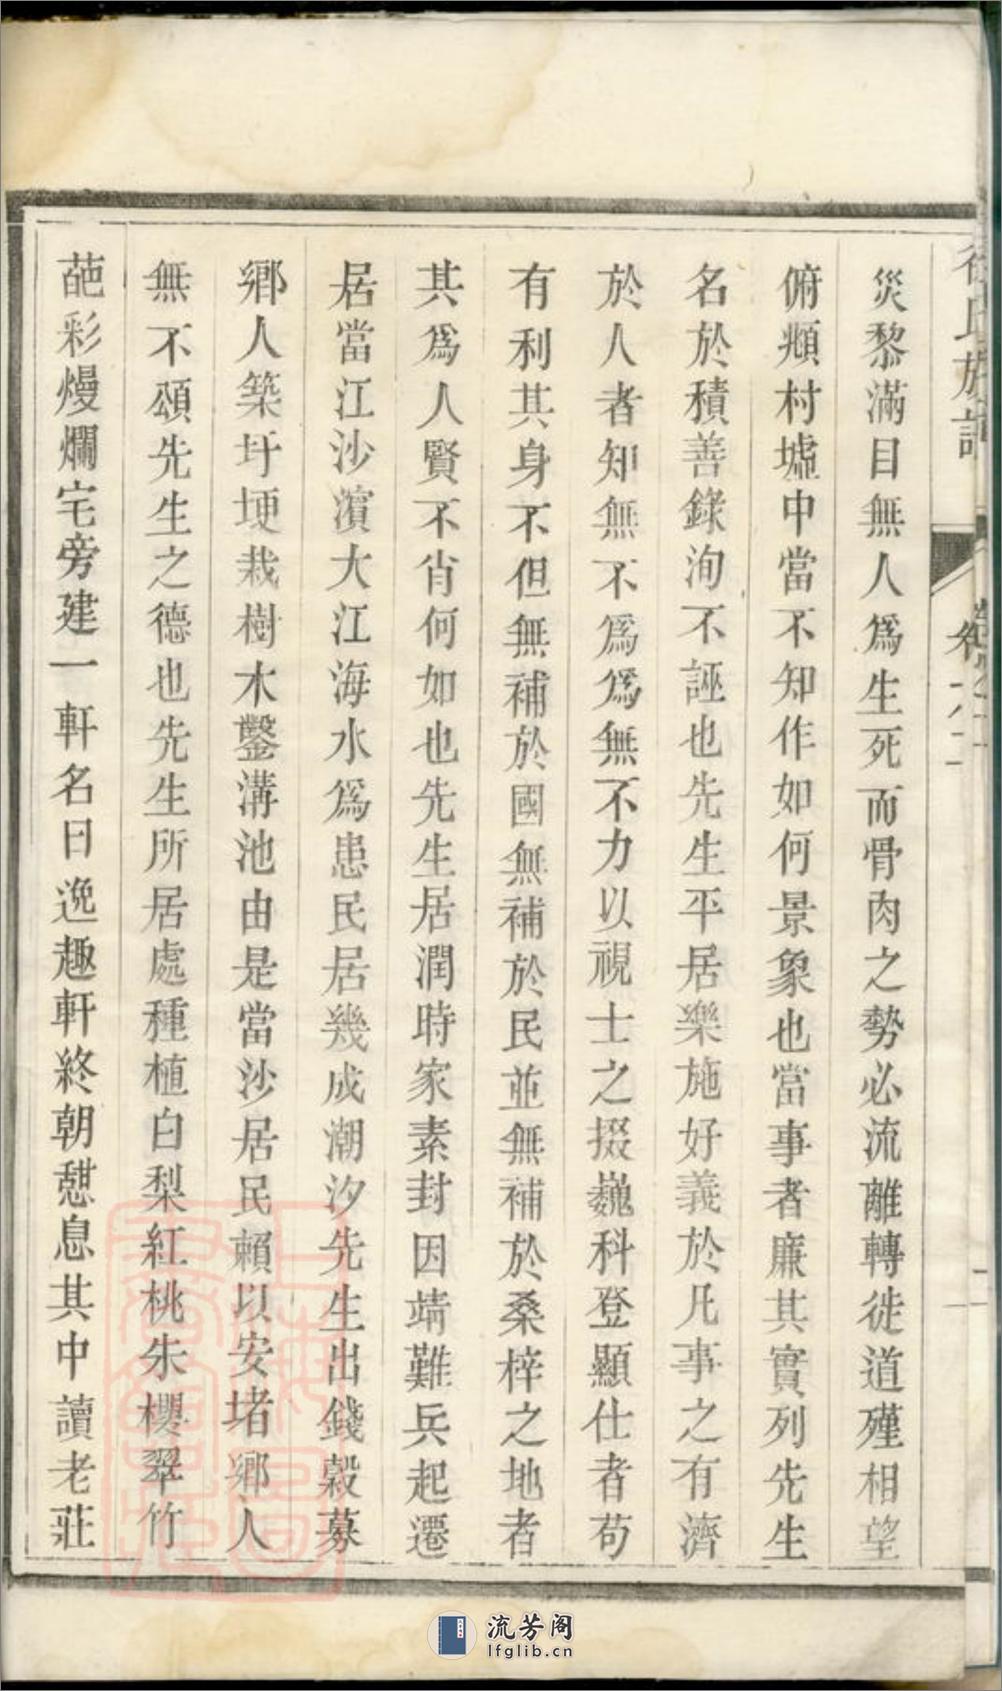 徐氏族譜
災黎滿目無人爲生死而骨肉之勢必流離轉徙道殣相望
俯頫村墟中當不知作如何景象也當事者廉其實列先生
名於積善錄洵不誣也先生平居樂施好義於凡事之有濟
於人者知無不爲爲無不力以視士之掇巍科登顯仕者苟
有利其身不但無補於國無補於民並無補於桑梓之地者
其爲人賢不肖何如也先生居潤時家素封因靖難兵起遷
居當江沙濵大江海水爲患民居幾成潮汐先生出錢穀募
鄉人築圩埂栽樹木鑿溝池由是當沙居民賴以安堵鄉人
無不頌先生之德也先生所居處種植白梨紅桃朱櫻翠竹
葩彩熳爛宅旁建一軒名曰逸趣軒終朝憇息其中讀老莊
流芳阁
lfglib.cn